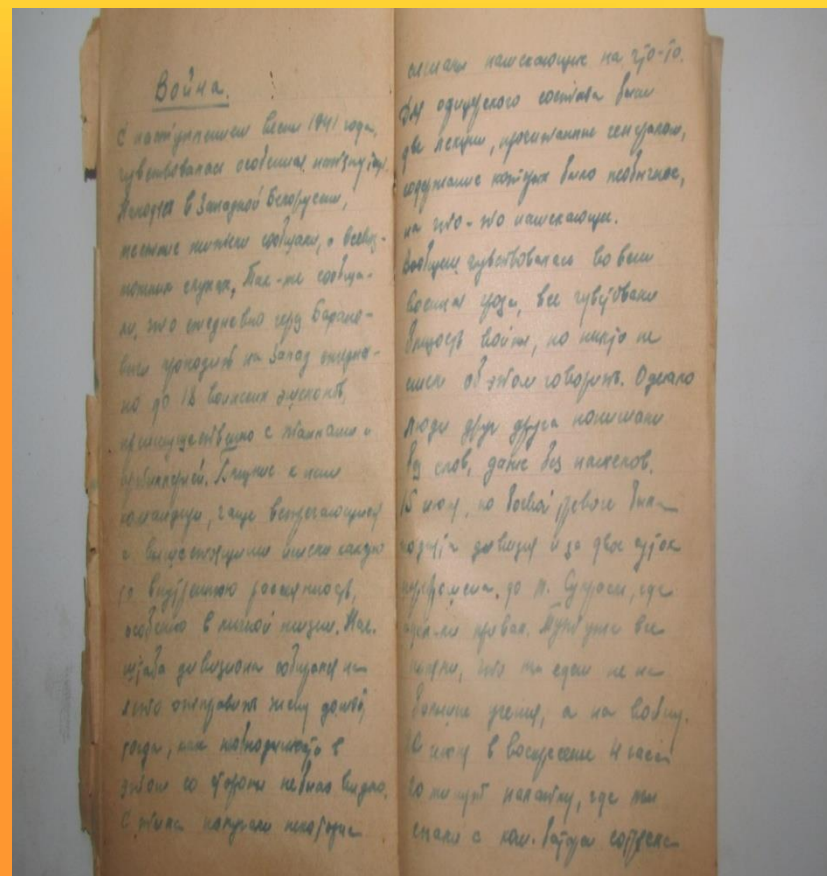 Война.
С наступлением весны 1941 года,
чувствовалась особенная натянутость.
Находясь в Западной Белоруссии,
местные жители сообщали, о всевоз-
можных слухах, Так-же сообща-
ли, что ежедневно через Барано-
вичи проходит на Запад
но до 12 воинских эшелонов,
преимущественно с танками и
артиллерией. Близкие к нам
командиры, чаще встречающиеся
с вышестоящими имели какую
то внутреннюю рассеянность,
особенно в личной жизни. Нач.
штаба дивизиона собирался на
лето отправить жену домой,
тогда, как необходимости в
этом со стороны не было видно.
С штаба получали некоторые
сигналы намекающие на что-то.
Для офицерского состава были
две лекции, прочитанные генералом,
содержание которых было необычное,
на что-то намекающие.
Вообщем чувствовалась во всем
военная гроза, все чувствовали
близость войны, но никто не
смели об этом говорить. Однако
люди друг друга понимали
без слов, даже без намеков.
15 июня, по боевой тревоге была
поднята дивизия и за двое суток
до м. Супрасль, где
сделали привал. Тут уже все
поняли, что мы едем не на
большие учения, а на войну.
22 июня в воскресение 4 часа
минут палатку, где мы
спали с ком. батареи